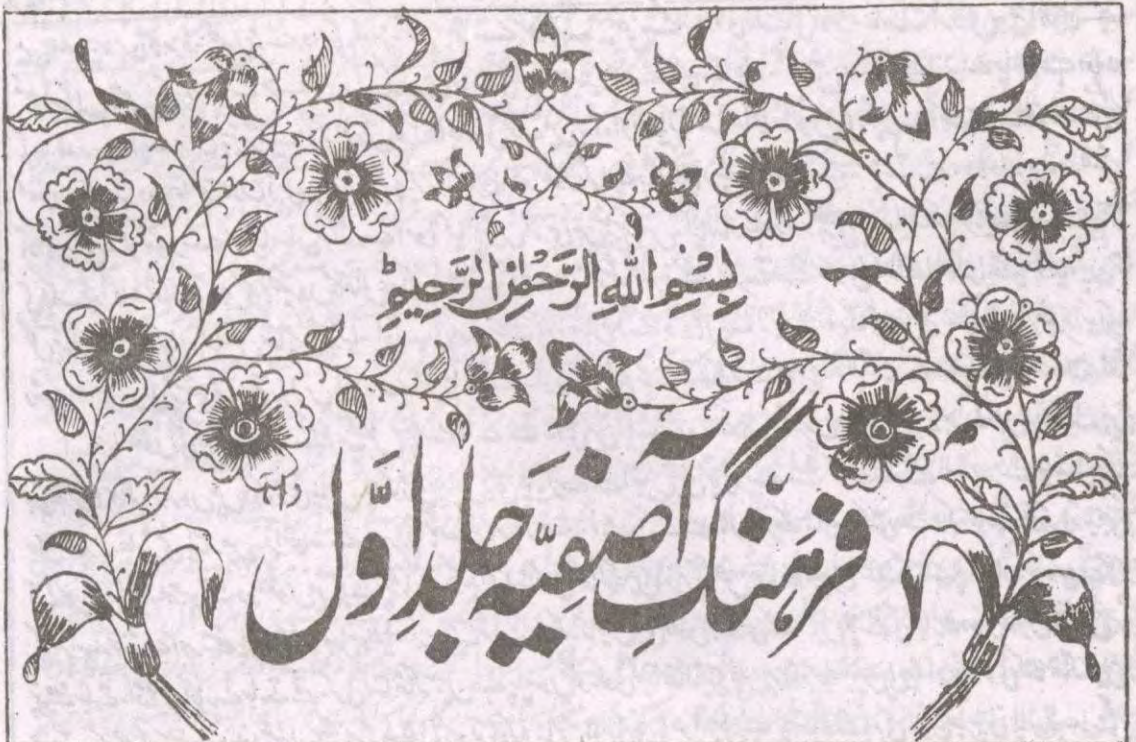 بِسْمِ اللهِ الرَّحْمٰنِ الرَّحِيْمِ ط
فرہنگِ آصفیّہ جلدِ اوّل (۱)